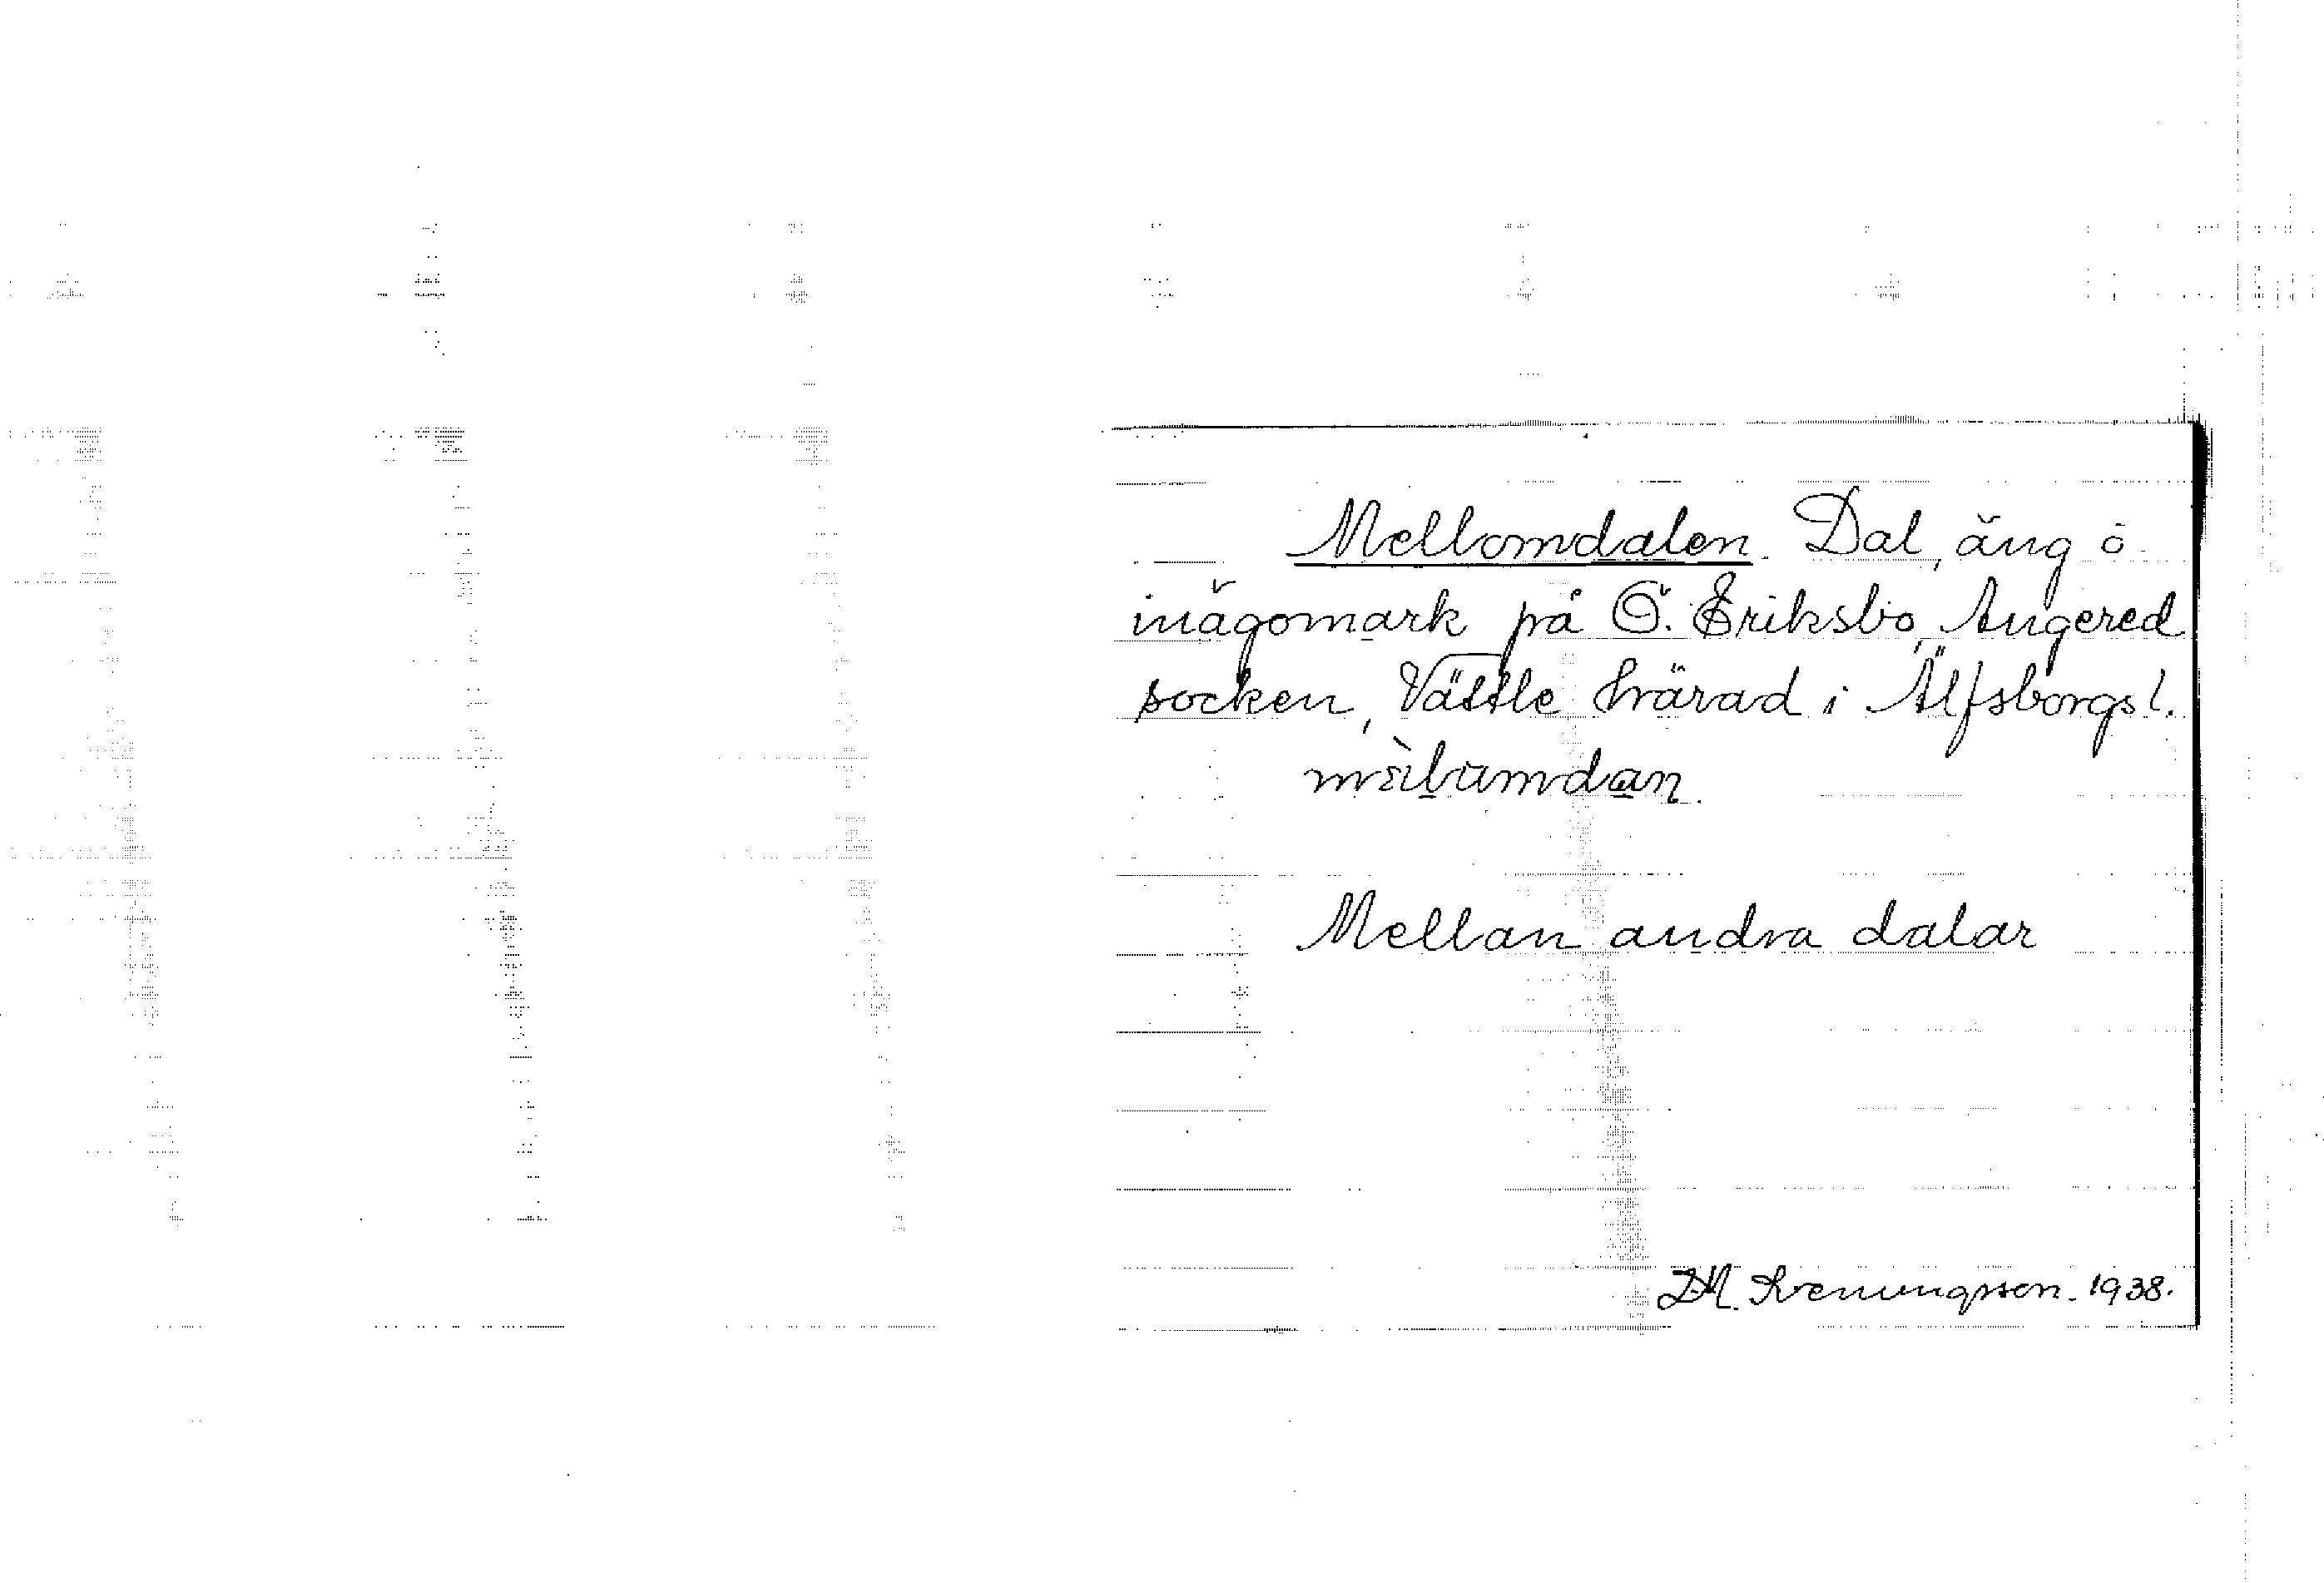 Mellomdalen. Dal, äng ö.
inägomark på Ö. Eriksbo, Angered
socken, Vättle härad i Älfsborgs l.
Mellan andra dalar
1938.